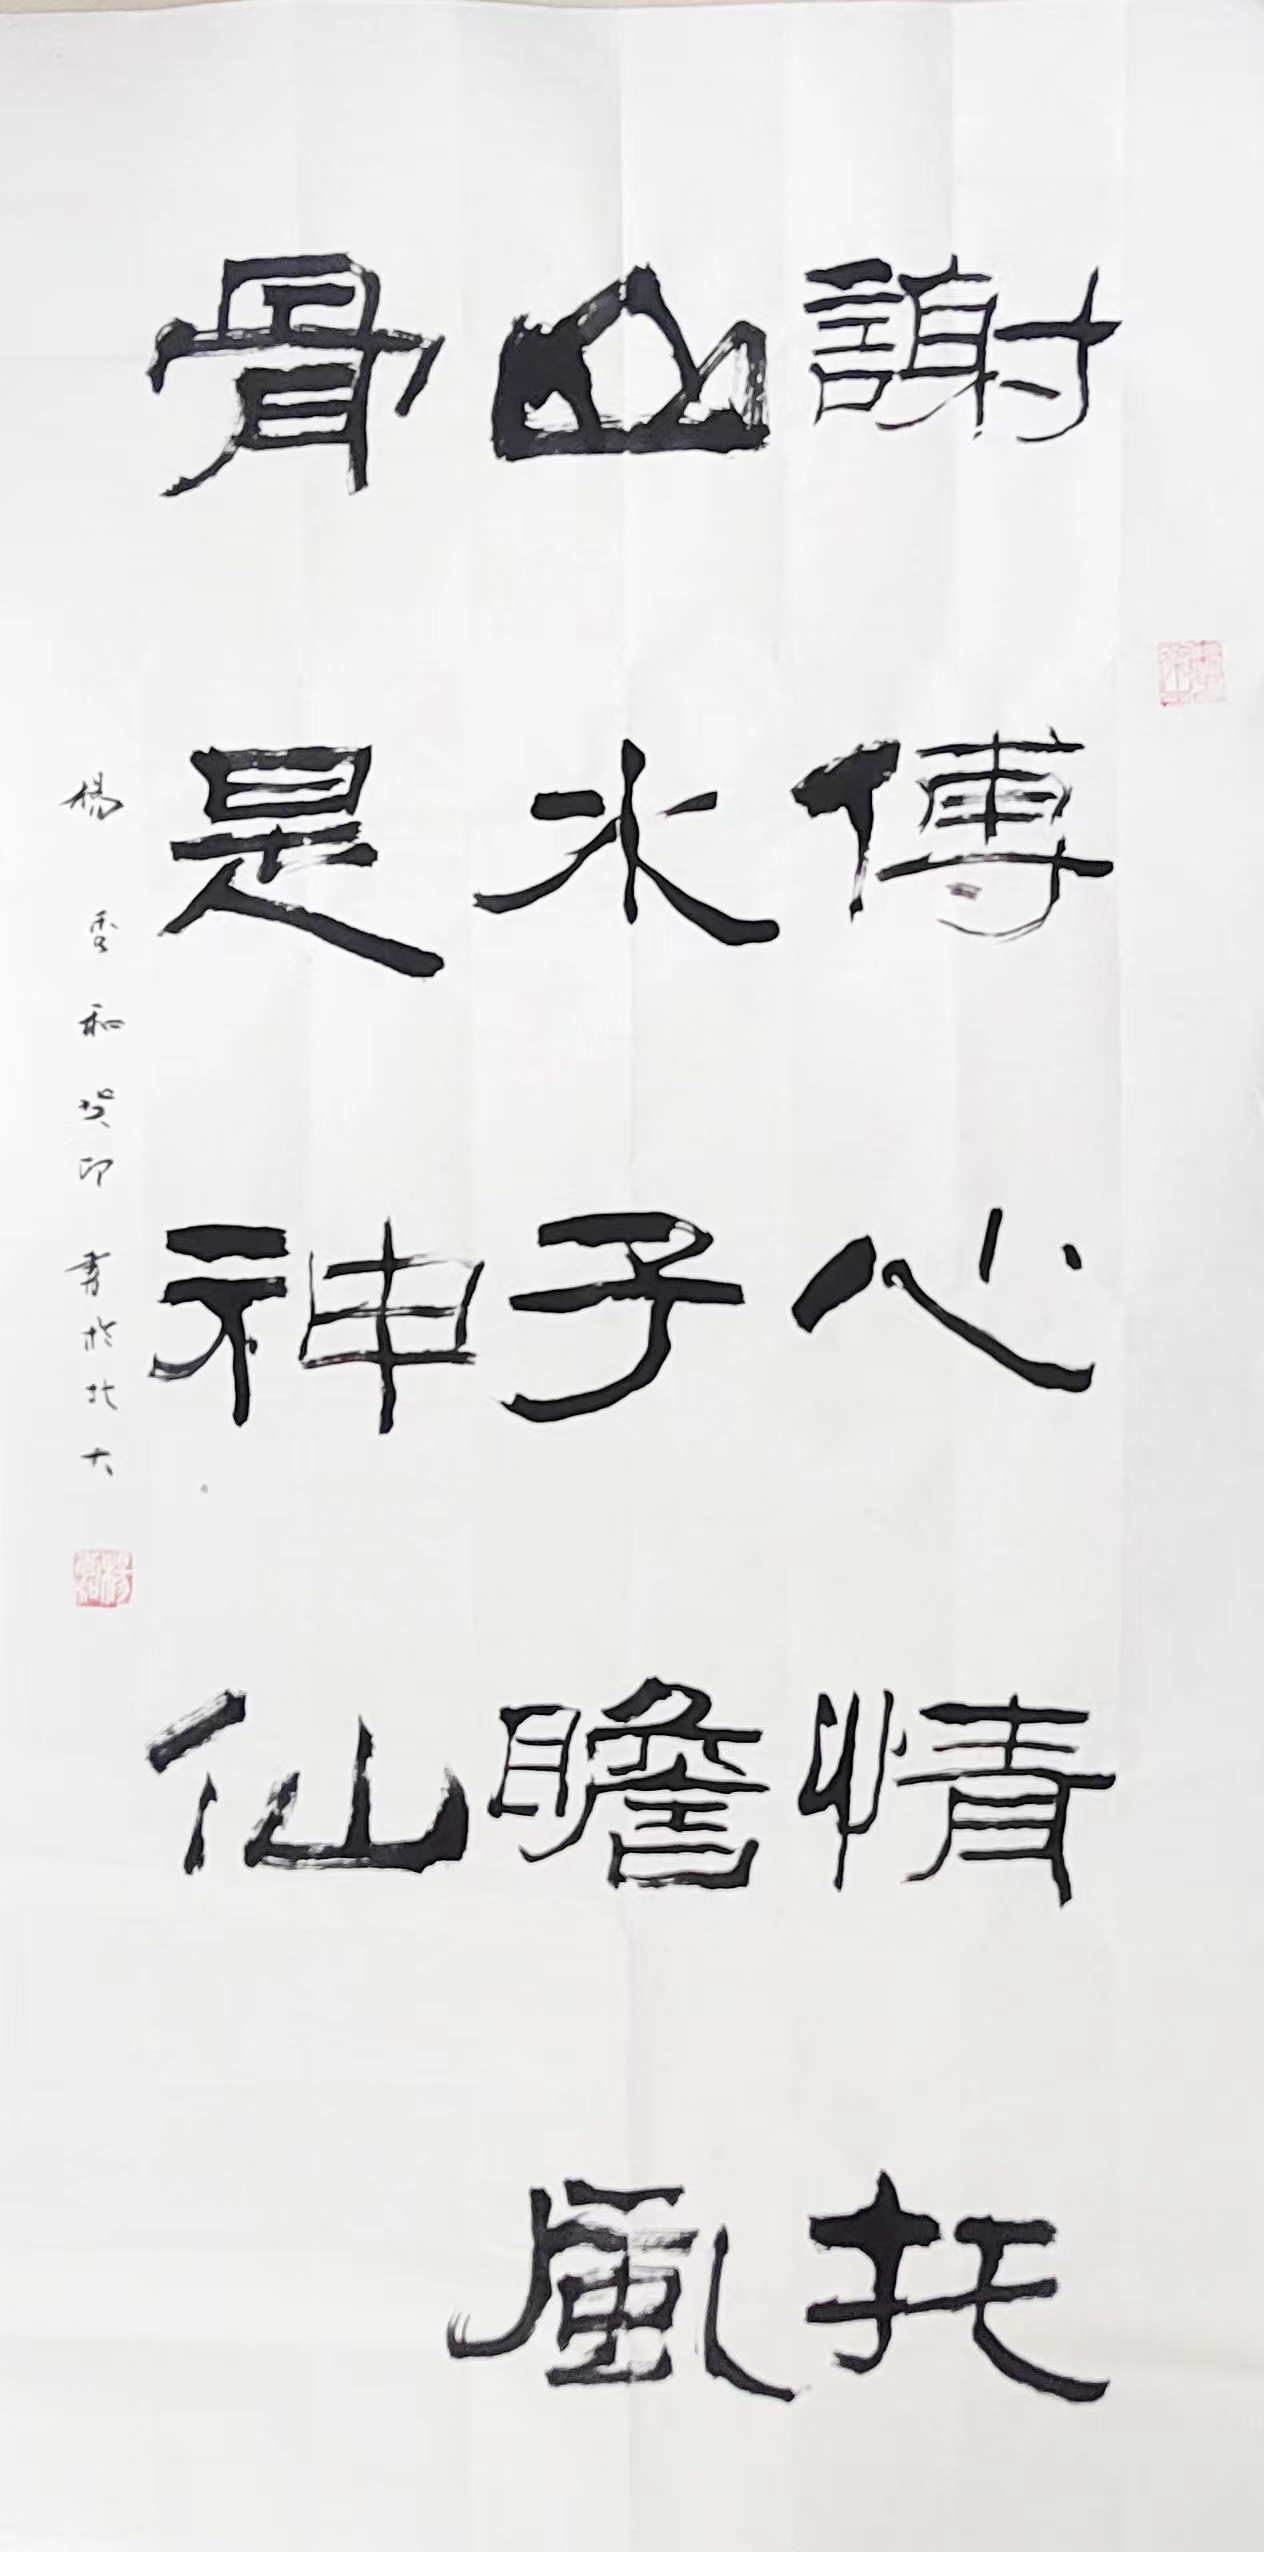 謝傅心情托
山水子瞻風
骨是神仙
楊秀和癸卯書於北大